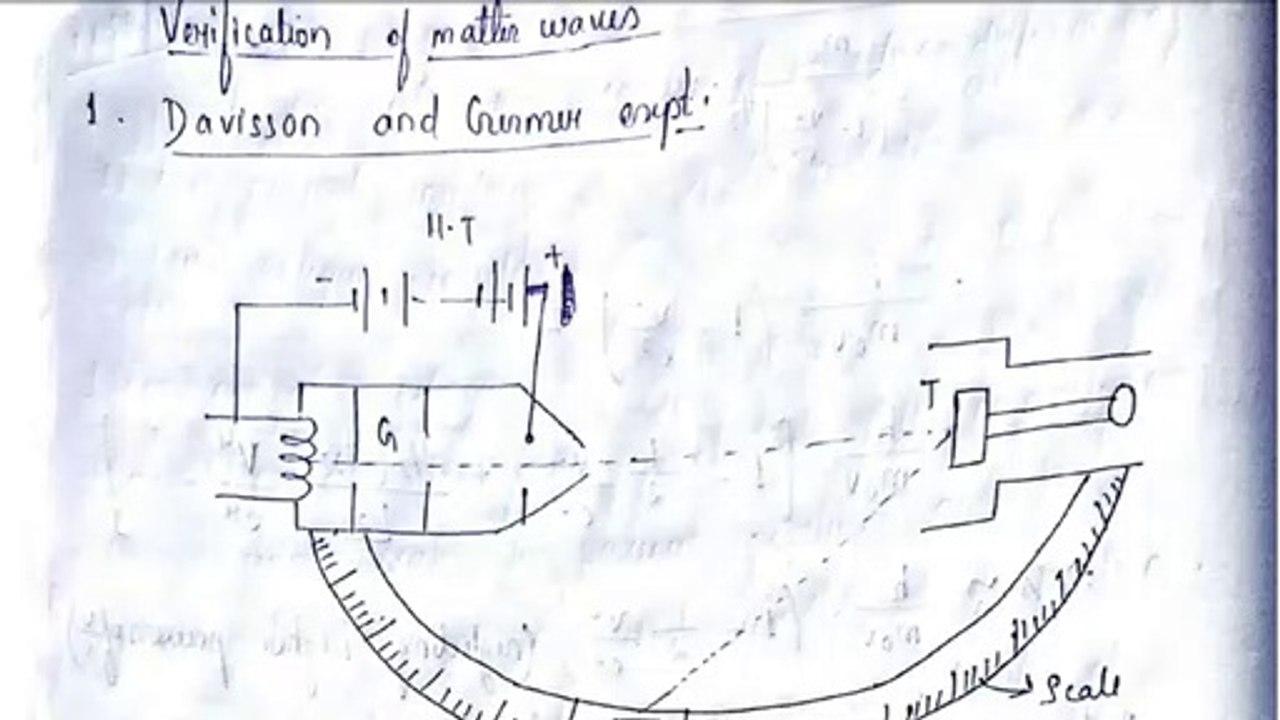 Verification of matter waves
1. Davisson and Germer expt.
H.T
- +
G
T
Scale